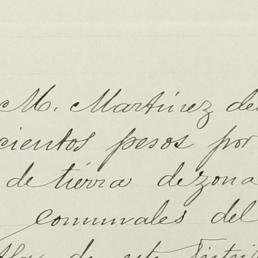 M. Martínez de
cientos pesos por
de tierra de zona
comunales del
de este Distri